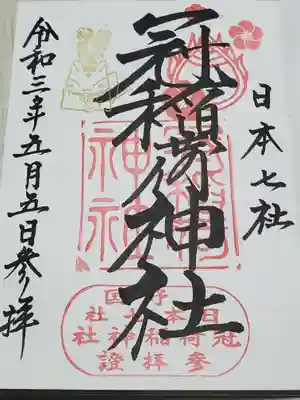 日本七社
冠稲荷神社
令和三年五月五日参拝
日本七社
冠稲荷神社
参拝證